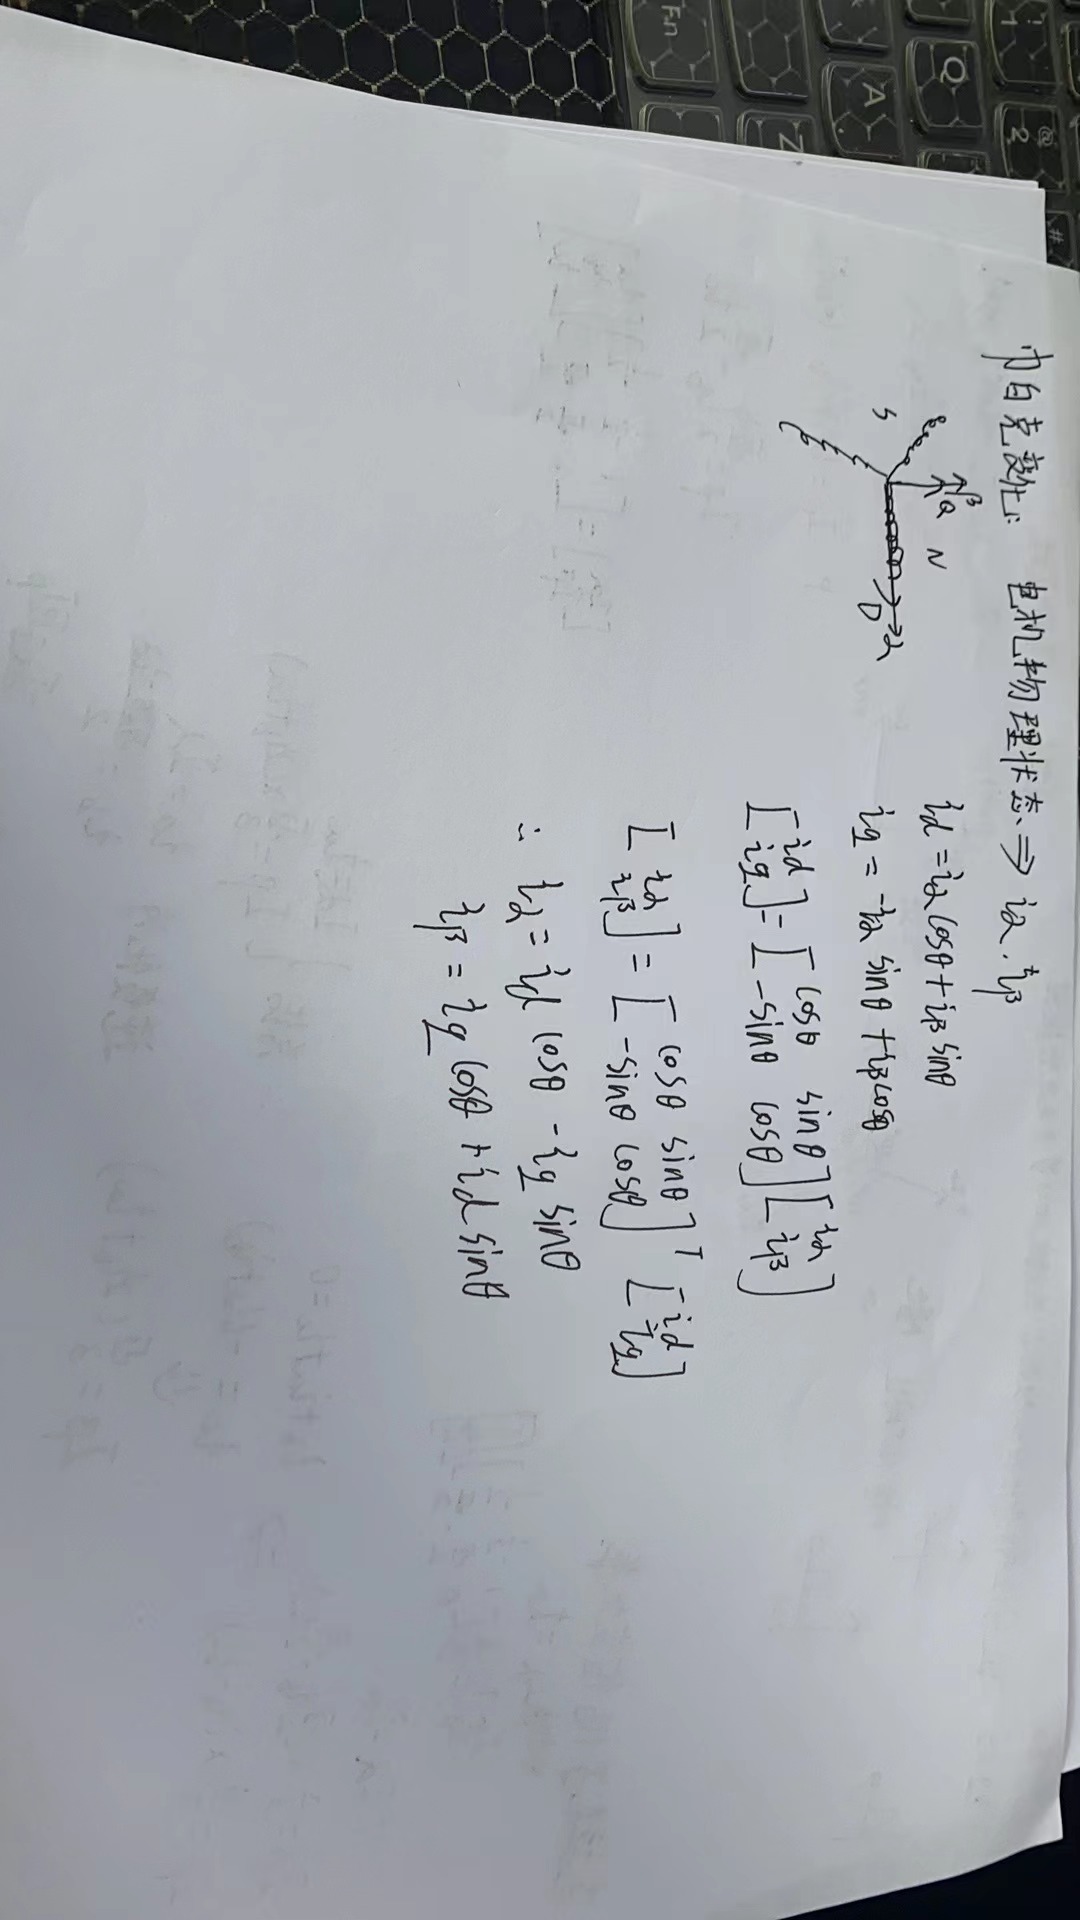 帕克变化: 电机物理状态 ⇒ iα. iβ
β
Q N
S D α
id = iα cosθ + iβ sinθ
iq = -iα sinθ + iβ cosθ
[id iq] = [cosθ sinθ -sinθ cosθ] [iα iβ]
[iα iβ] = [cosθ sinθ -sinθ cosθ]ᵀ [id iq]
∴ iα = id cosθ - iq sinθ
iβ = iq cosθ + id sinθ
!
1
@
2
#
Q
A
Z
Fn